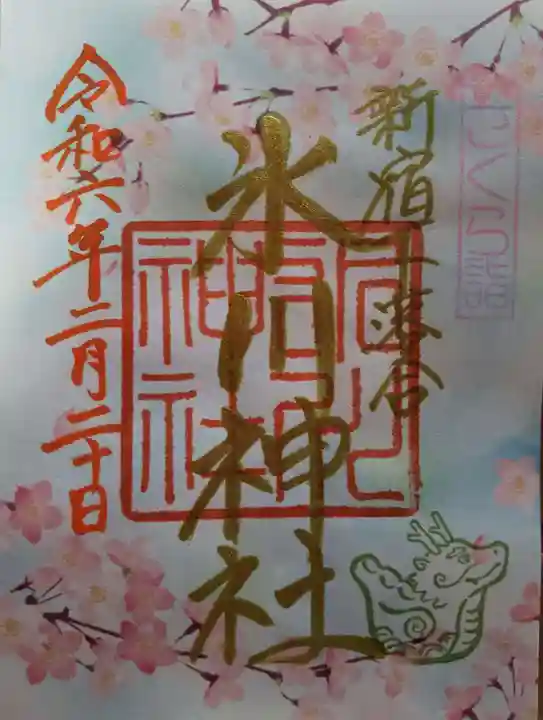 さくら詣
新宿下落合
氷川神社
令和六年二月二十日